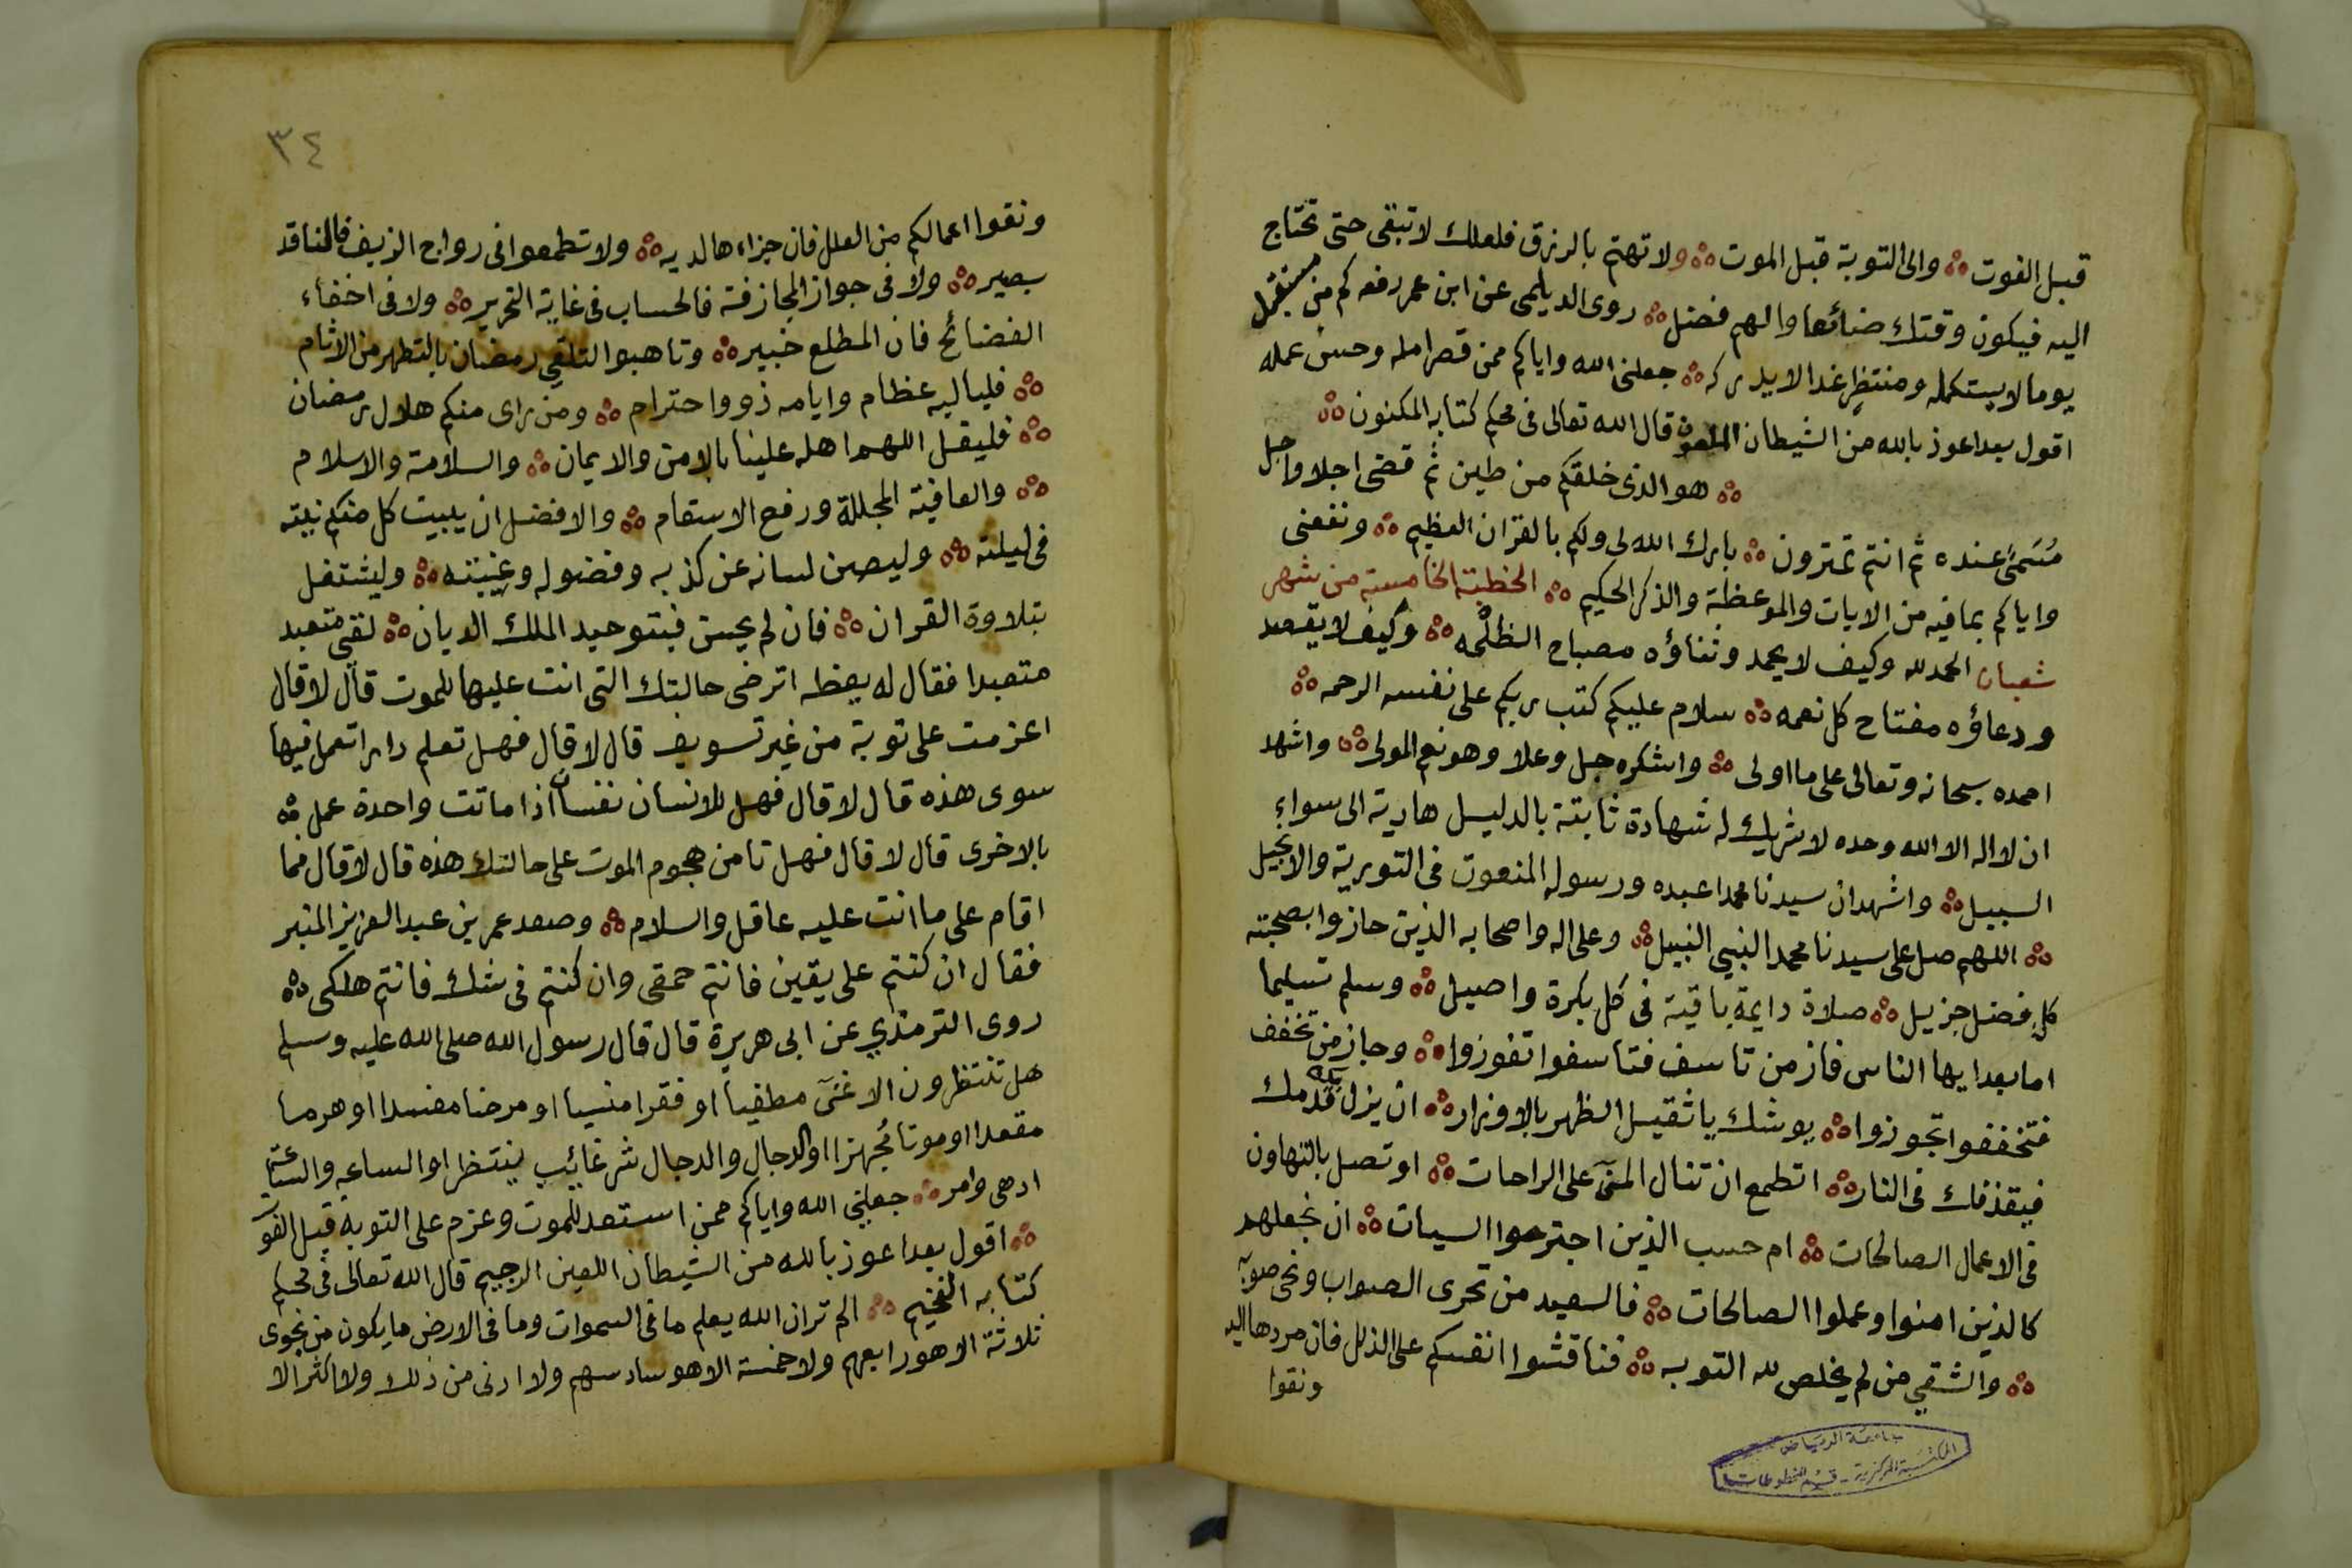 قبل الفوت ؞ والى التوبة قبل الموت ؞ ولا تهتم بالرزق فلعلك لا تبقى حتى تحتاج
اليه فيكون وقتك ضائعا والهم فضل ؞ روى الديلمى عن ابن عمر رفعه كم من مستقبل
يوما لا يستكمله ومنتظر غدا لا يدركه ؞ جعلنى الله واياكم ممن قصر امله وحسن عمله
اقول بعد اعوذ بالله من الشيطان قال الله تعالى فى محكم كتابه المكنون ؞
؞ هو الذى خلقكم من طين ثم قضى اجلا واجل
مُسَمىً عنده ثم انتم تمترون ؞ بارك الله لى ولكم بالقران العظيم ؞ ونفعنى
واياكم بما فيه من الايات والموعظة والذكر الحكيم ؞ الخطبة الخامسة من شهر
شعبان الحمد لله وكيف لا يحمد وثناؤه مصباح الظلمه ؞ وكيف لا يقصد
ودعاؤه مفتاح كل نعمه ؞ سلام عليكم كتب ربكم على نفسه الرحمه ؞
احمده سبحانه وتعالى على ما اولى ؞ واشكره جل وعلا وهو نعم المولى ؞ واشهد
ان لا اله الا الله وحده لا شريك له شهادة ثابتة بالدليل هادية الى سواء
السبيل ؞ واشهد ان سيدنا محمدا عبده ورسوله المنعوت فى التورية والانجيل
؞ اللهم صل على سيدنا محمد النبي النبيل ؞ وعلى اله واصحابه الذين حازوا بصحبته
كل فضل جزيل ؞ صلاة دايمة باقية فى كل بكرة واصيل ؞ وسلم تسليما
اما بعد ايها الناس فاز من تاسف فتاسفوا تفوزوا ؞ وجاز من تخفف
فتخففوا تجوزوا ؞ يوشك يا ثقيل الظهر بالاوزار ؞ ان يزل بك قدمك
فيقذفك فى النار ؞ اتطمع ان تنال المنى على الراحات ؞ او تصل بالتهاون
فى الاعمال الصالحات ؞ ام حسب الذين اجترحوا السيات ؞ ان نجعلهم
كالذين امنوا وعملوا الصالحات ؞ فالسعيد من تحرى الصواب ونحى صوبه
؞ والشقي من لم يخلص لله التوبه ؞ فناقشوا انفسكم على الذلل فان مردها اليه
ونقوا
جامعة الرياض
المكتبة المركزية - قسم المخطوطات
٣٤
ونقوا اعمالكم من العلل فان جزاءها لديه ؞ ولا تطمعوا فى رواج الزيف فالناقد
بصير ؞ ولا فى جواز المجازفة فالحساب فى غاية التحرير ؞ ولا فى اخفاء
الفضائح فان المطلع خبير ؞ وتاهبوا لتلقي رمضان بالتطهر من الاثام
؞ فلياليه عظام وايامه ذووا احترام ؞ ومن راى منكم هلال رمضان
؞ فليقل اللهم اهله علينا بالامن والايمان ؞ والسلامة والاسلام
؞ والعافية المجللة ورفع الاسقام ؞ والافضل ان يبيت كل منكم نيته
فى ليلته ؞ وليصن لسانه عن كذبه وفضوله وغيبته ؞ وليشتغل
بتلاوة القران ؞ فان لم يحسن فبتوحيد الملك الديان ؞ لقي متعبد
متعبدا فقال له يعظه اترضى حالتك التى انت عليها للموت قال لا قال
اعزمت على توبة من غير تسويف قال لا قال فهل تعلم دارا تعمل فيها
سوى هذه قال لا قال فهل للانسان نفسان اذا ماتت واحدة عمل ؞
بالاخرى قال لا قال فهل تامن هجوم الموت على حالتك هذه قال لا قال فما
اقام على ما انت عليه عاقل والسلام ؞ وصعد عمر بن عبد العزيز المنبر
فقال ان كنتم على يقين فانتم حمقى وان كنتم فى شك فانتم هلكى ؞
روى الترمذي عن ابى هريرة قال قال رسول الله صلى الله عليه وسلم
هل تنتظرون الا غنى مطغيا او فقرا منسيا او مرضا مفسدا او هرما
مقعدا او موتا مُجهزا او الدجال والدجال شر غائب ينتظر او الساعه والساعة
ادهى وامر ؞ جعلني الله واياكم ممن استعد للموت وعزم على التوبه قبل الفوت
؞ اقول بعد اعوذ بالله من الشيطان اللعين الرجيم قال الله تعالى فى محكم
كتابه الفخيم ؞ الم تر ان الله يعلم ما فى السموات وما فى الارض ما يكون من نجوى
ثلاثة الا هو رابعهم ولا خمسة الا هو سادسهم ولا ادنى من ذلك ولا اكثر الا